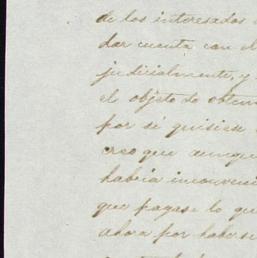 de los interesados
dar cuenta con el
judicialmente, y
el objeto de obten
por sí quisiese
creo que aunque
habría inconveni
que pagase lo qu
ahora por haberse